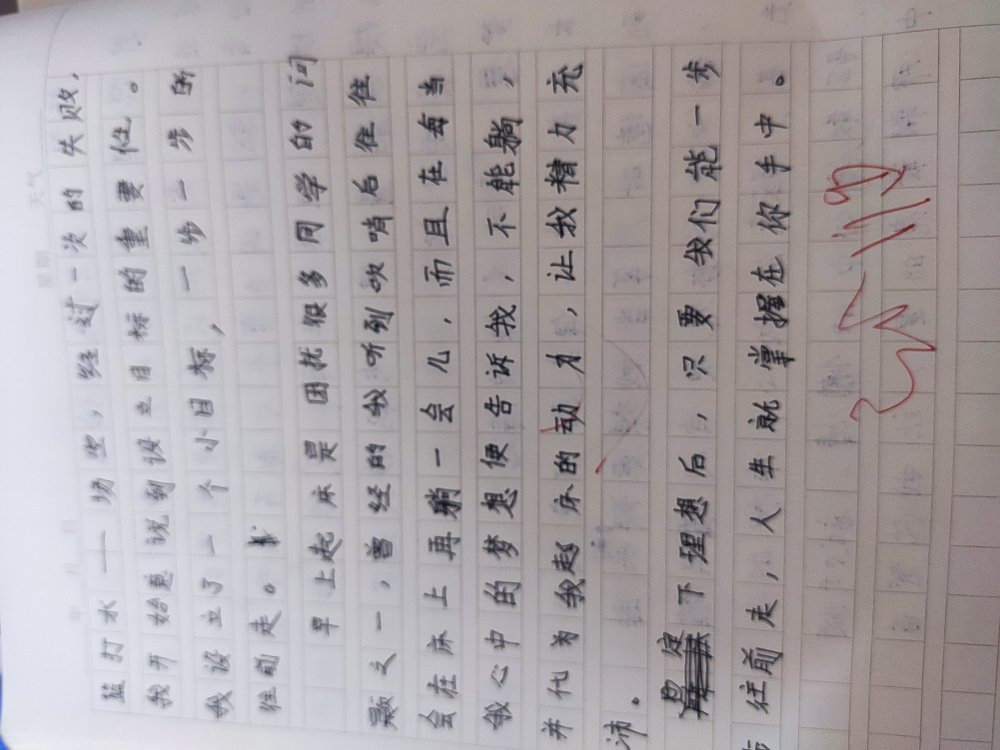 篮打水一场空，经过一次的失败，
我开始意识到设立目标的重要性。
我设立了一个小目标，一步一步
往前走。
早上起床是困扰很多同学的问
题之一，曾经的我听到吹哨后往往
会在床上再躺一会儿，而且在每当
我心中的梦想便告诉我，不能躺，
并化为我起床的动力，让我精力充
沛。
定下理想后，只要我们能一步
步往前走，人生就掌握在你手中。